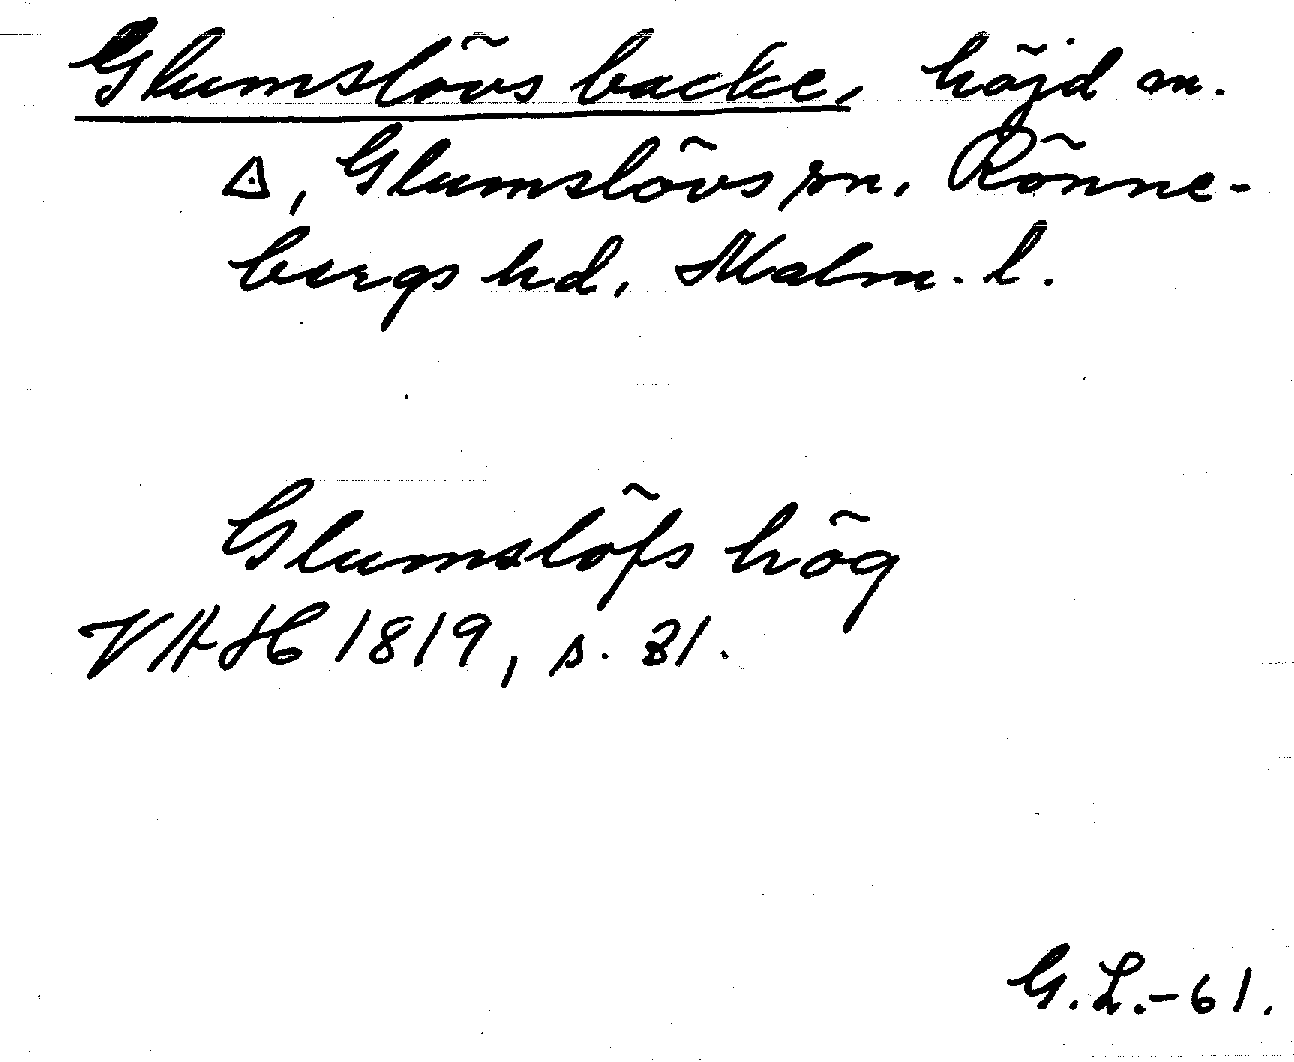 Glumslövs backe, höjd m.
△, Glumslövs sn. Rönne-
bergs hd, Malm. l.
Glumslöfs hög
VAH 1819, s. 81.
G.L.-61.